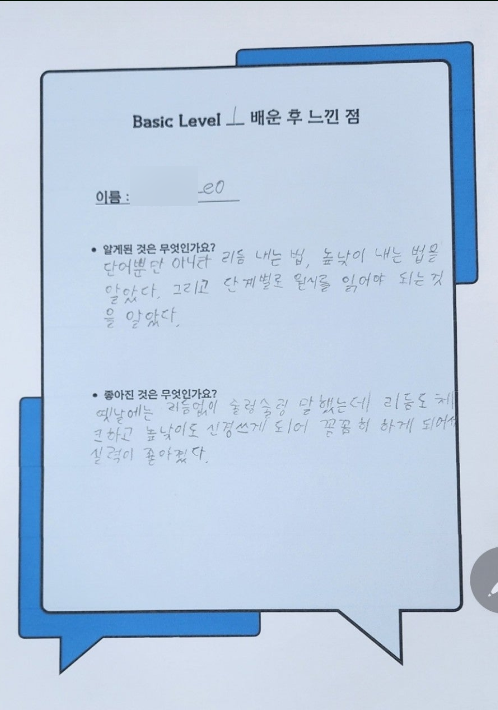 Basic Level 1 배운 후 느낀 점
이름 : eo
• 알게된 것은 무엇인가요?
단어뿐만 아니라 리듬 내는 법, 높낮이 내는 법을
알았다. 그리고 단계별로 원서를 읽어야 되는것
을 알았다.
• 좋아진 것은 무엇인가요?
옛날에는 리듬없이 술렁술렁 말했는데 리듬도 체
크하고 높낮이도 신경쓰게 되어 꼼꼼히 하게 되어서
실력이 좋아졌다.